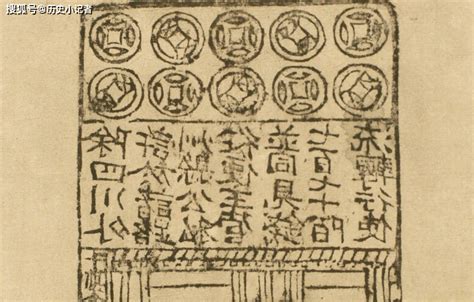 搜狐号@历史小记者
除四川外
許於諸路
州縣公私
從便主管
並同見錢
七百七十陌
流轉行使